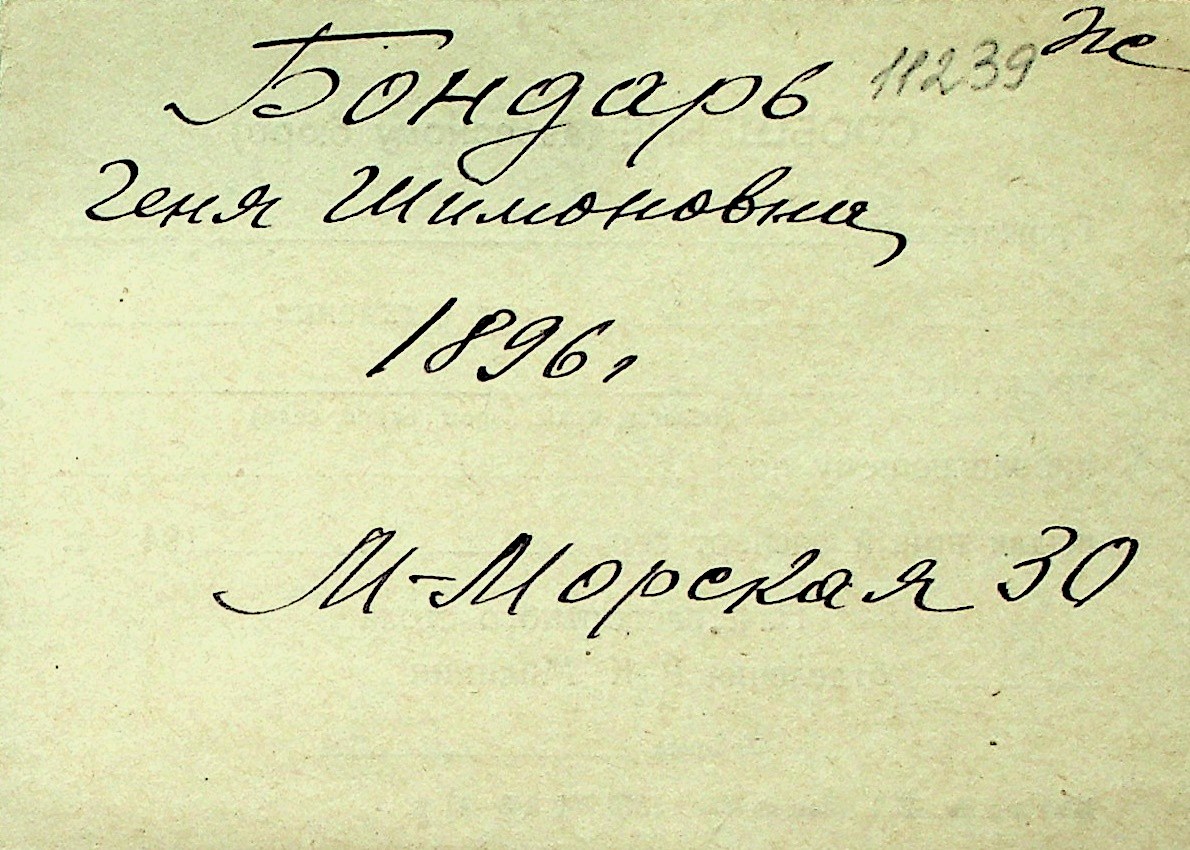 Бондарь 11239 же
Геня Шимоновна
1896г
М-Морская 30